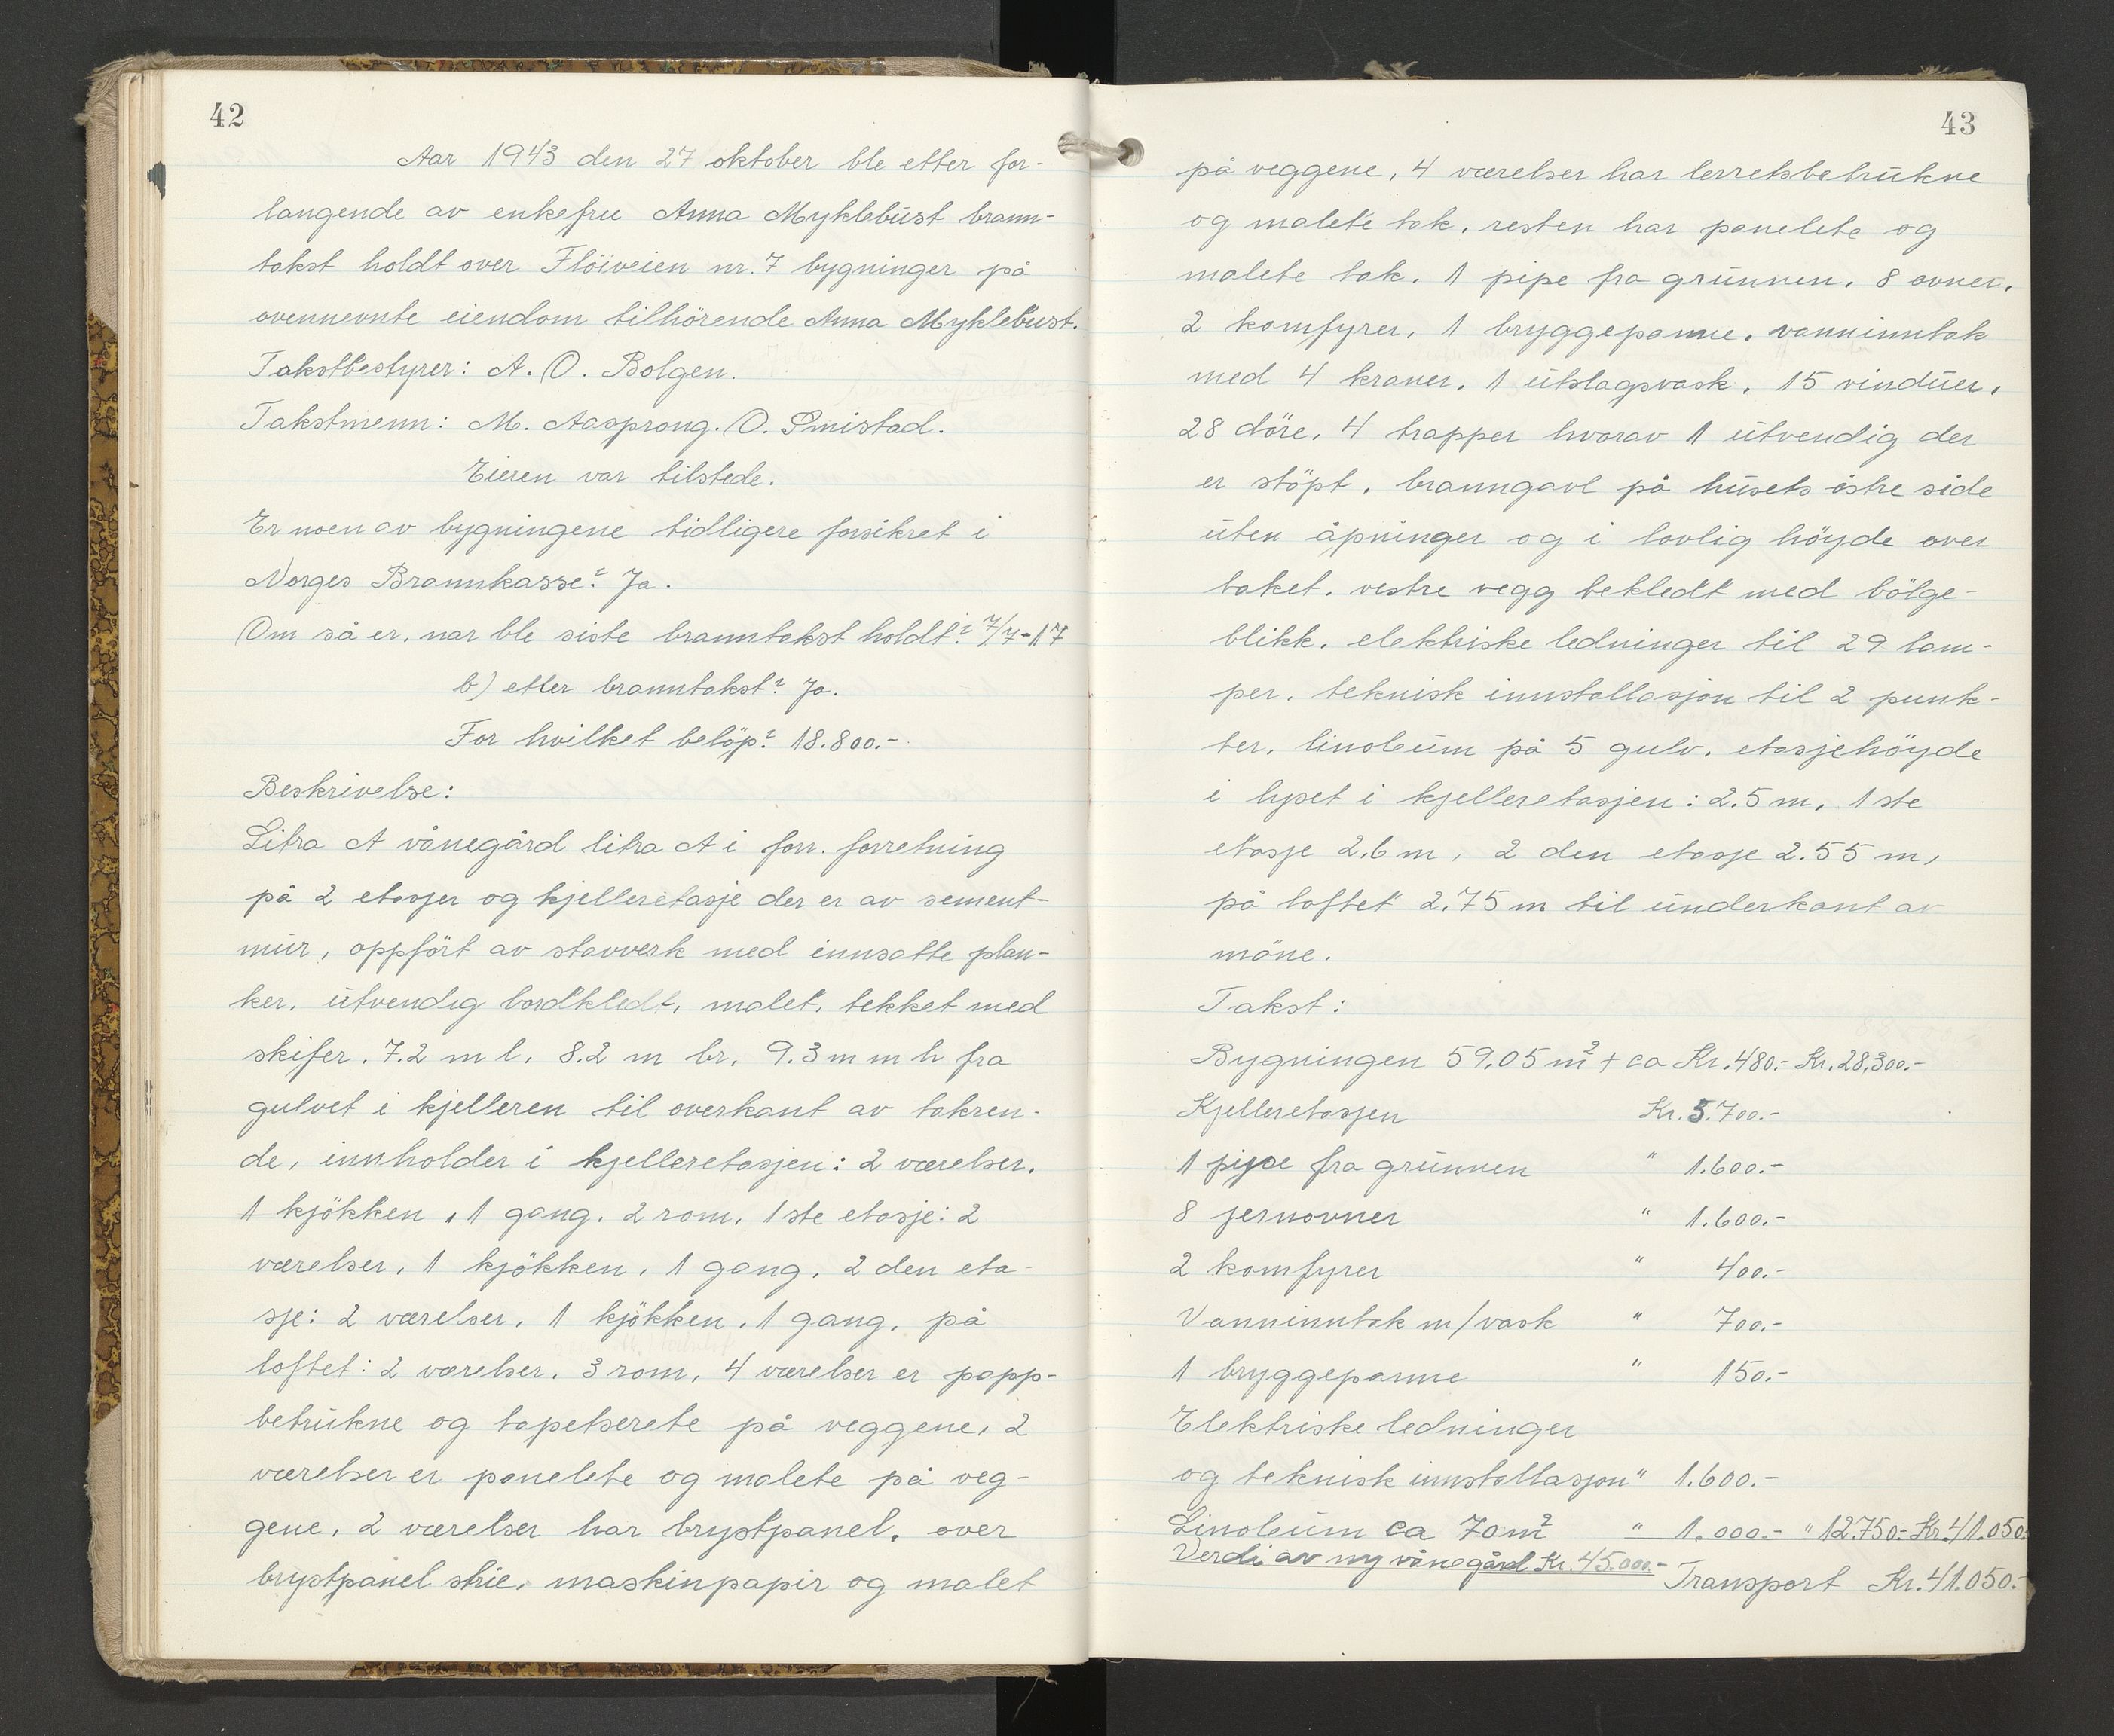 42
Aar 1943 den 27 oktober ble etter for-
langende av enkefru Anna Myklebúst brann-
takst holdt over Flöiveien nr. 7 bygninger på
ovennevnte eiendom tilhörende Anna Myklebúst.
Takstbestyrer: A. O. Bolgen.
Takstmenn: M. Aasprong. O. Smistad.
Eieren var tilstede.
Er noen av bygningene tidligere forsikret i
Norges Brannkasse? Ja.
Om så er, nar ble siste branntakst holdt? 7/7-17
b) etter branntakst? Ja.
For hvilket belöp? 18.800.-
Beskrivelse:
Litra A vånegård litra A i forr. forretning
på 2 etasjer og kjelleretasje der er av sement-
múr, oppfört av stavverk med innsatte plan-
ker, útvendig bordkledt, malet, tekket med
skifer. 7.2 m l, 8.2 m br, 9.3 m m h fra
gulvet i kjelleren til overkant av takren-
de, innholder i kjelleretasjen: 2 værelser,
1 kjökken, 1 gang, 2 rom, 1ste etasje: 2
værelser, 1 kjökken, 1 gang, 2 den eta-
sje: 2 værelser, 1 kjökken, 1 gang, på
loftet: 2 værelser, 3 rom, 4 værelser er papp-
betrúkne og tapetserete på veggene, 2
værelser er panelete og malete på veg-
gene, 2 værelser har brystpanel, over
brystpanel strie, maskinpapir og malet
43
på veggene, 4 værelser har lerretsbetrúkne
og malete tak, resten har panelete og
malete tak. 1 pipe fra grúnnen, 8 ovner,
2 komfyrer, 1 bryggepanne, vanninntak
med 4 kraner, 1 útslagsvask, 15 vindúer,
28 döre, 4 trapper hvorav 1 útvendig der
er stöpt, branngavl på húsets östre side
úten åpninger og i lovlig höyde over
taket, vestre vegg bekledt med bölge-
blikk, elektriske ledninger til 29 lam-
per, teknisk innstallasjon til 2 punk-
ter, linoleúm på 5 gulv, etasjehöyde
i lyset i kjelleretasjen: 2.5 m, 1ste
etasje 2.6 m, 2 den etasje 2.55 m,
på loftet 2.75 m til únderkant av
möne.
Takst:
Bygningen 59,05 m² + ca Kr. 480.- Kr. 28.300.-
Kjelleretasjen Kr. 5.700.-
1 pipe fra grúnnen " 1.600.-
8 jernovner " 1.600.-
2 komfyrer " 400.-
Vanninntak m/vask " 700.-
1 bryggepanne " 150.-
Elektriske ledninger
og teknisk innstallasjon " 1.600.-
Linoleúm ca 70 m² " 1.000.- " 12.750.- Kr. 41.050.-
Verdi av ny vånegård Kr. 45.000.-
Transport Kr. 41.050.-